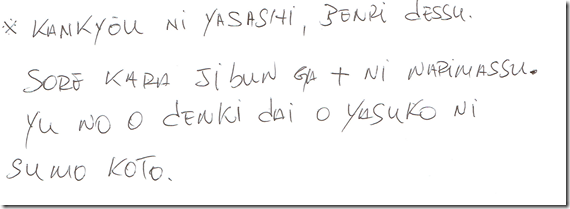 ※ KANKYŌU NI YASASHI, BENRI DESSU.
SORE KARA JiBUN GA + NI NARIMASSU.
YU NO O dENKI dAi O YASUKO Ni
SUMO KOTO.